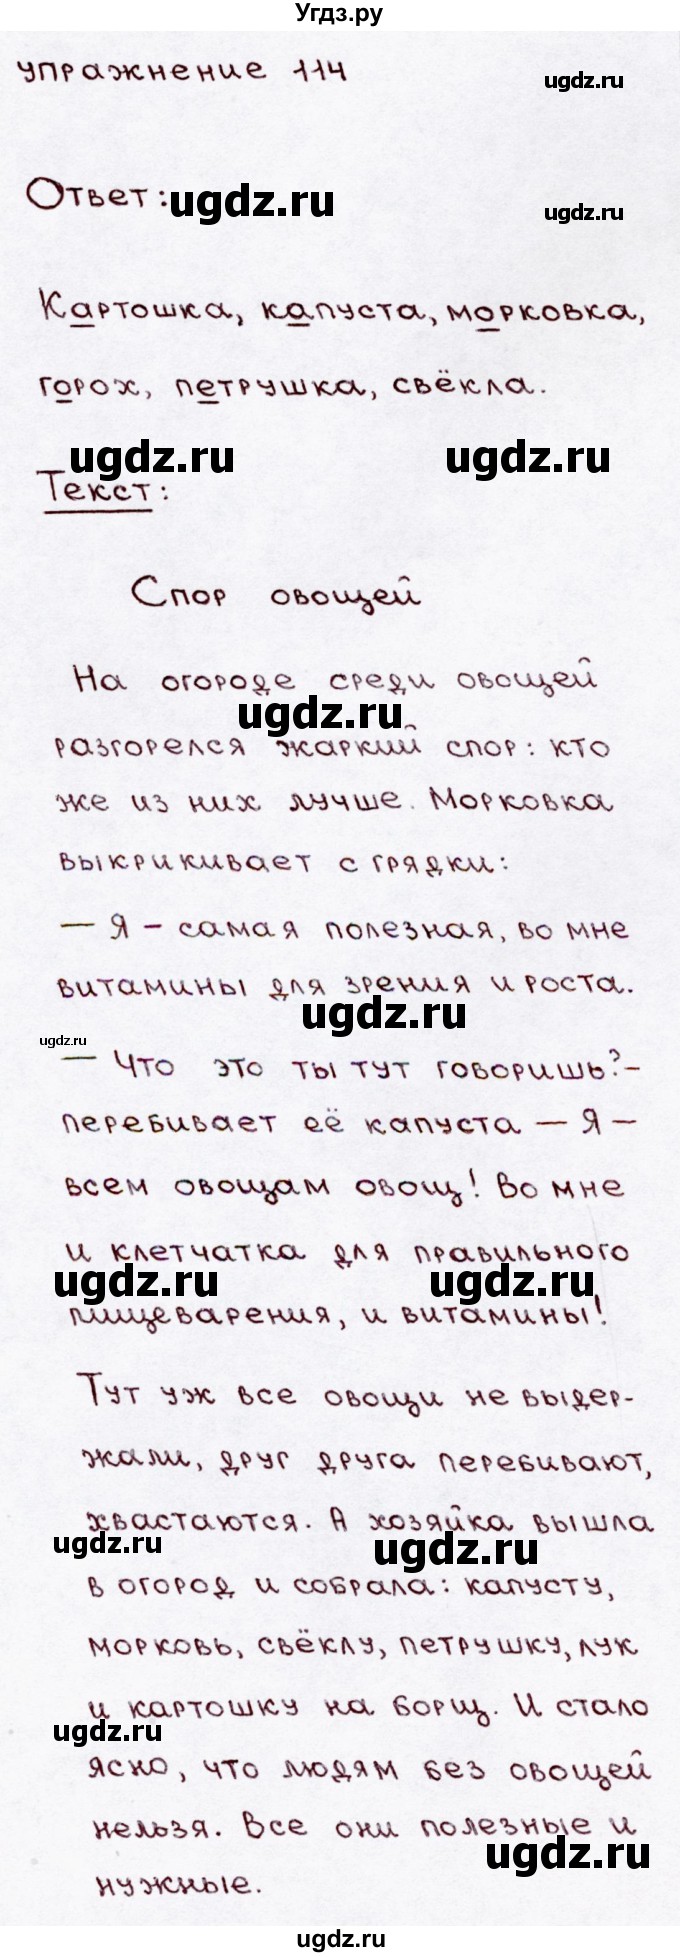 Угдз.ру
упражнение 114
ugdz.ru
Ответ:
ugdz.ru
ugdz.ru
Картошка, капуста, морковка,
горох, петрушка, свёкла.
ugdz.ru
ugdz.ru
Текст:
Спор овощей
На огороде среди овощей
ugdz.ru
разгорелся жаркий спор: кто
же из них лучше. Морковка
выкрикивает с грядки:
— Я – самая полезная, во мне
витамины для зрения и роста.
ugdz.ru
ugdz.ru
— Что это ты тут говоришь? –
перебивает её капуста – Я –
всем овощам овощ! Во мне
и клетчатка для правильного
ugdz.ru
ugdz.ru
пищеварения, и витамины!
Тут уж все овощи не выдер-
жали, друг друга перебивают,
хвастаются. А хозяйка вышла
ugdz.ru
ugdz.ru
в огород и собрала: капусту,
морковь, свёклу, петрушку, лук
и картошку на борщ. И стало
ugdz.ru
ясно, что людям без овощей
нельзя. Все они полезные и
ugdz.ru
нужные.
ugdz.ru